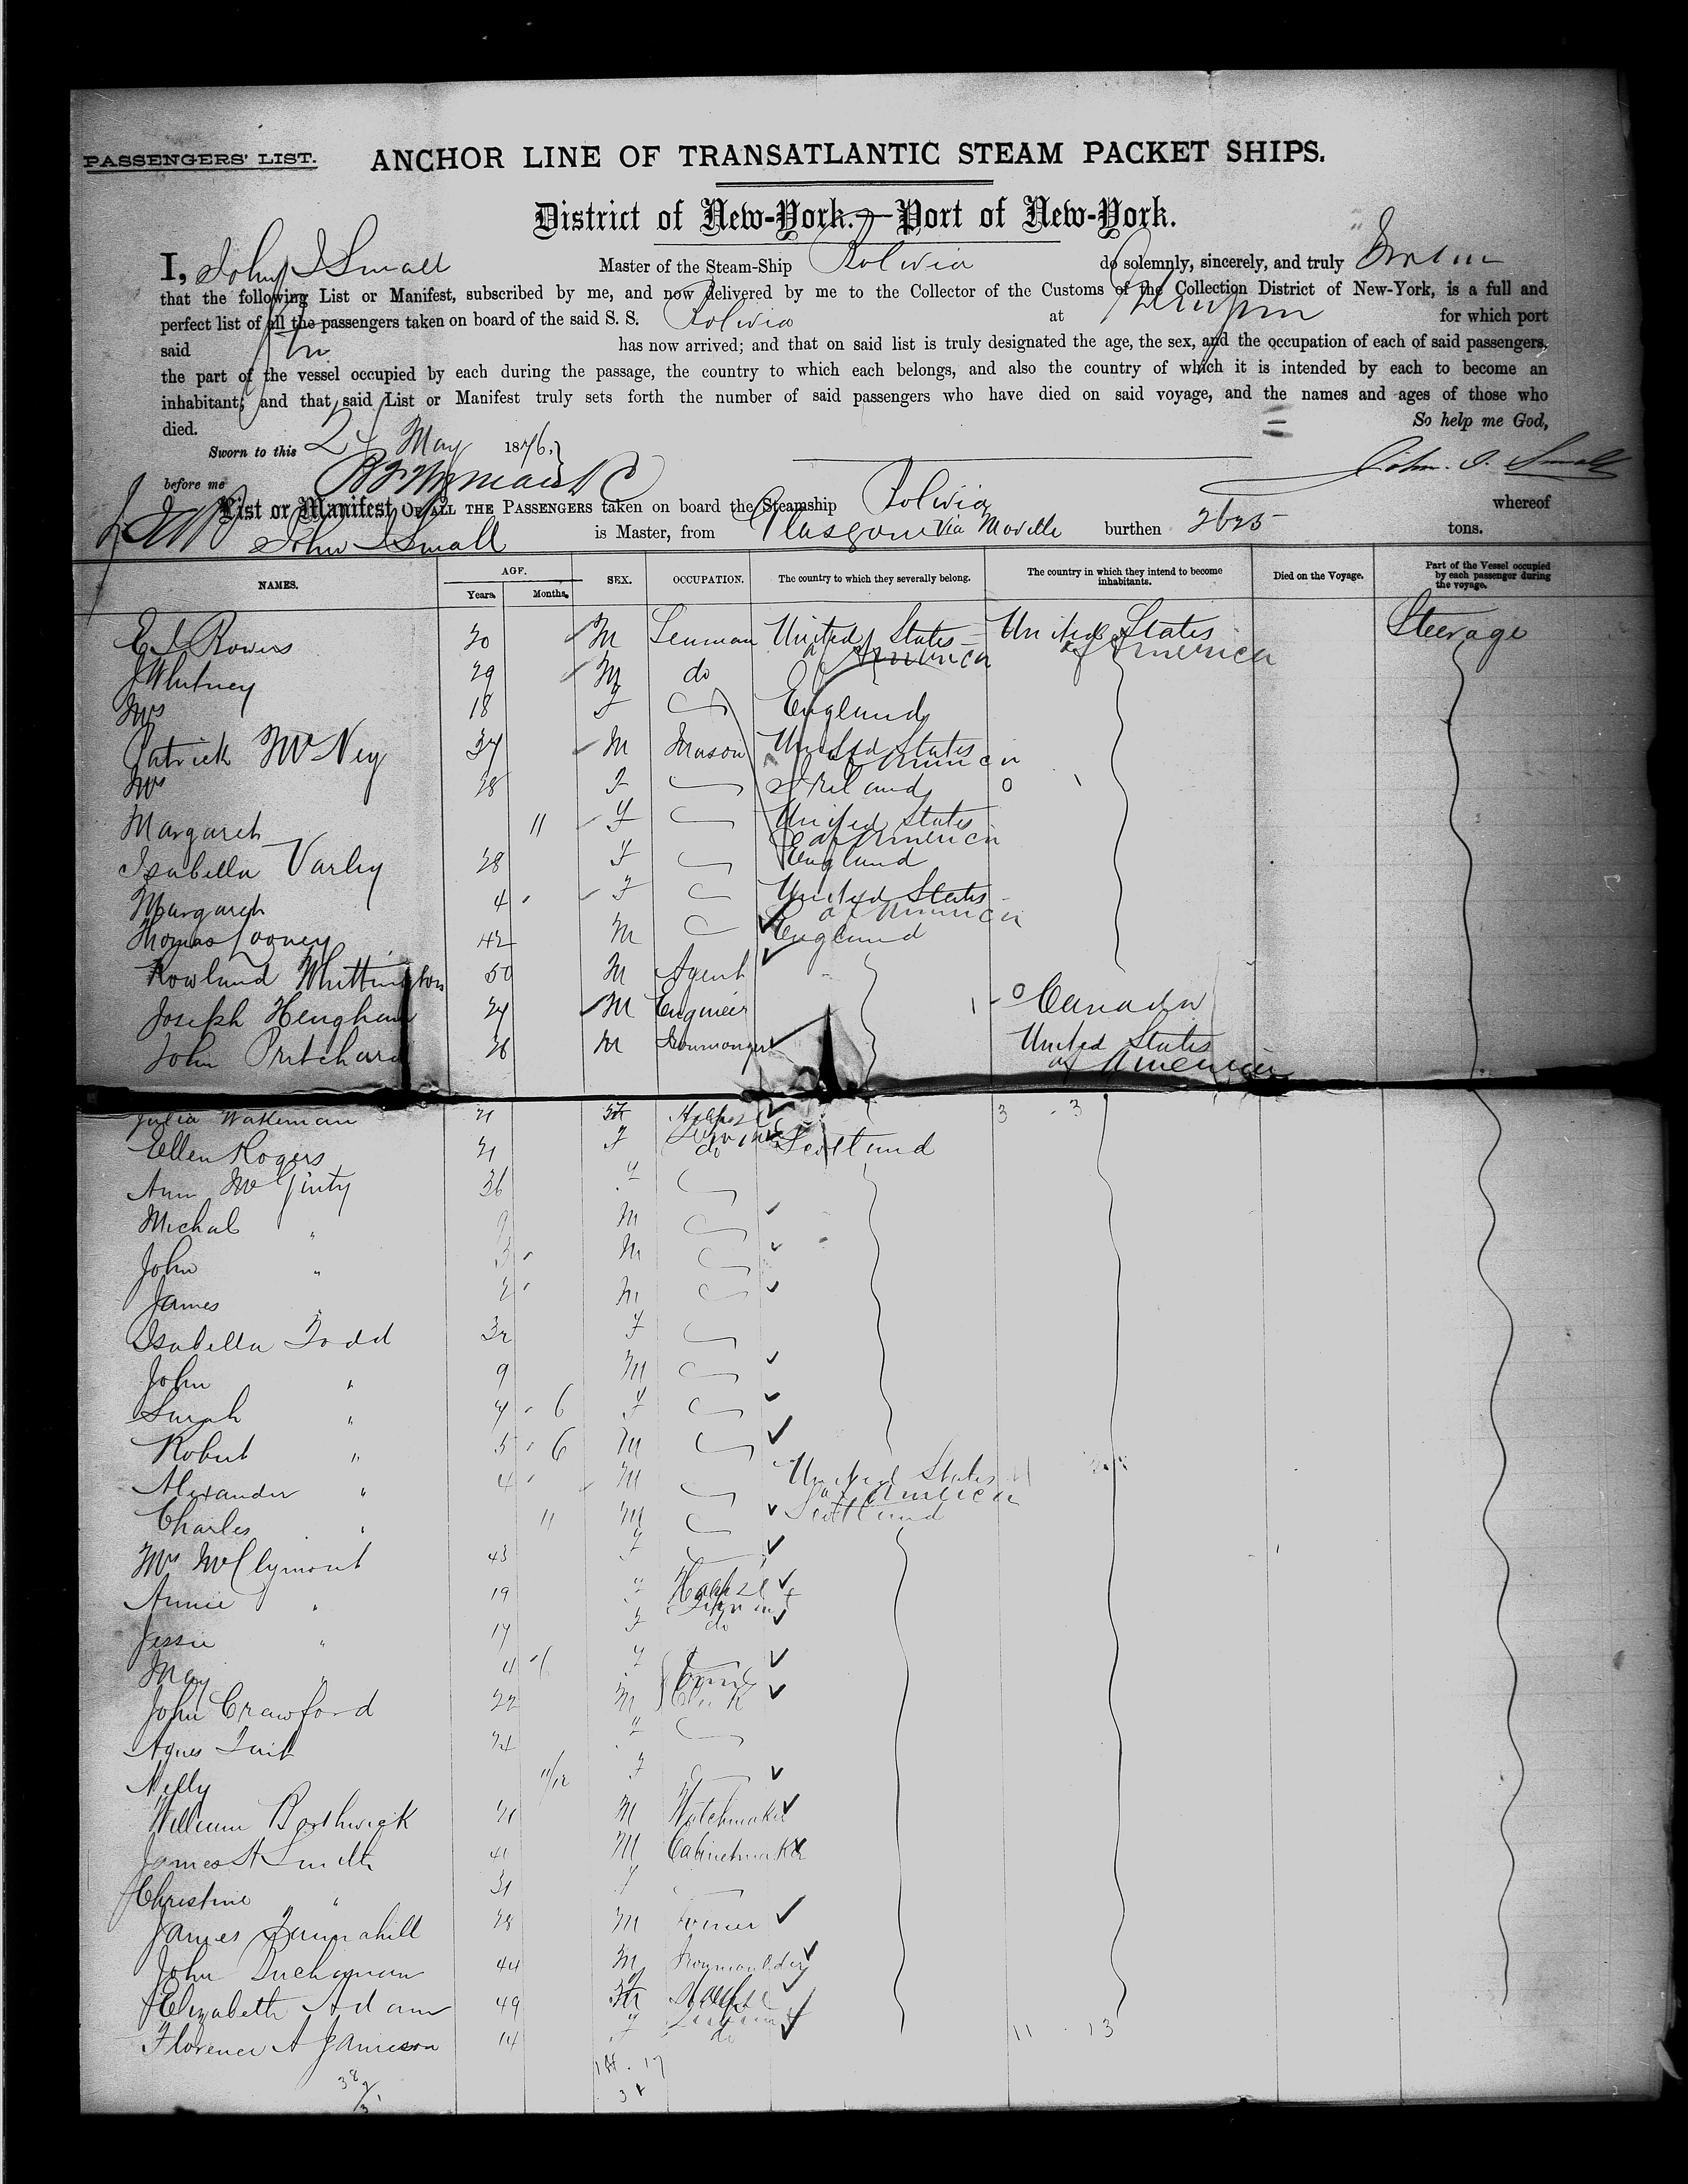 PASSENGERS' LIST.
ANCHOR LINE OF TRANSATLANTIC STEAM PACKET SHIPS.
District of New-York.—Port of New-York.
I, John I Small Master of the Steam-Ship Bolivia do solemnly, sincerely, and truly
that the following List or Manifest, subscribed by me, and now delivered by me to the Collector of the Customs of the Collection District of New-York, is a full and
perfect list of all the passengers taken on board of the said S. S. Bolivia at for which port
said has now arrived; and that on said list is truly designated the age, the sex, and the occupation of each of said passengers,
the part of the vessel occupied by each during the passage, the country to which each belongs, and also the country of which it is intended by each to become an
inhabitant; and that said List or Manifest truly sets forth the number of said passengers who have died on said voyage, and the names and ages of those who
died. So help me God,
Sworn to this 2 May 1876.
John. I. Small
before me
List or Manifest OF ALL THE PASSENGERS taken on board the Steamship Bolivia whereof
John I Small is Master, from Glasgow via Moville burthen 2625 tons.
NAMES. AGE. Years. Months. SEX. OCCUPATION. The country to which they severally belong. The country in which they intend to become inhabitants. Died on the Voyage. Part of the Vessel occupied by each passenger during the voyage.
30 M Seaman United States of America United States of America Steerage
J Whitney 29 M do
Mrs 18 F England
Patrick McVey 37 M Mason United States of America
Mrs 28 F Ireland
Margaret 11 F United States of America
Isabella Varley 28 F England
Margaret 4 F United States of America
Thomas Cooney 42 M England
Rowland Whittington 50 M Agent
Joseph Hengham 24 M Engineer Canada
John Pritchard 26 M Ironmonger United States of America
Julia Wakeman 21 F 3 - 3
Ellen Rogers 21 F do Scotland
Ann McGinty 36 F
Michal " 9 M
John " 3 M
James 2 M
Isabella Todd 32 F
John " 9 M
Sarah " 7 6 F
Robert " 5 6 M
Alexander " 4 M United States of America
Charles " 11 M Scotland
Mrs McClymont 43 F
Annie " 19 F House Servant
Jessie " 17 F do
May " 4 F
John Crawford 22 M Clerk
Agnes Tait 24 F
Nelly 11/12 F
William Borthwick 21 M Watchmaker
James H Smith 41 M Cabinetmaker
Christine " 31 F
James Tannahill 28 M Joiner
John Buchanan 44 M Ironmoulder
Elizabeth Adam 49 F
Florence A Jamieson 14 F do 11 - 13